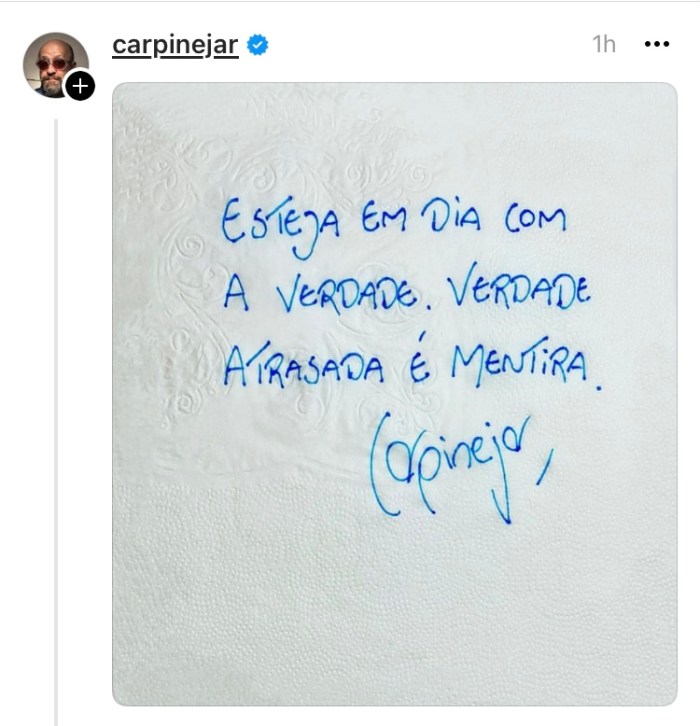 carpinejar
1h
ESTEJA EM DIA COM
A VERDADE. VERDADE
ATRASADA É MENTIRA.
Carpinejar,